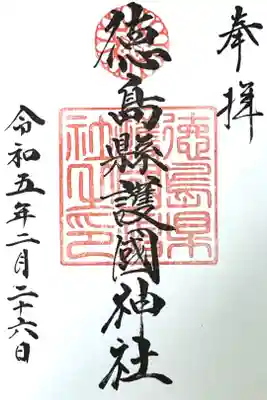 奉拝
徳島縣護國神社
徳島県護國神社之印
令和五年二月二十六日